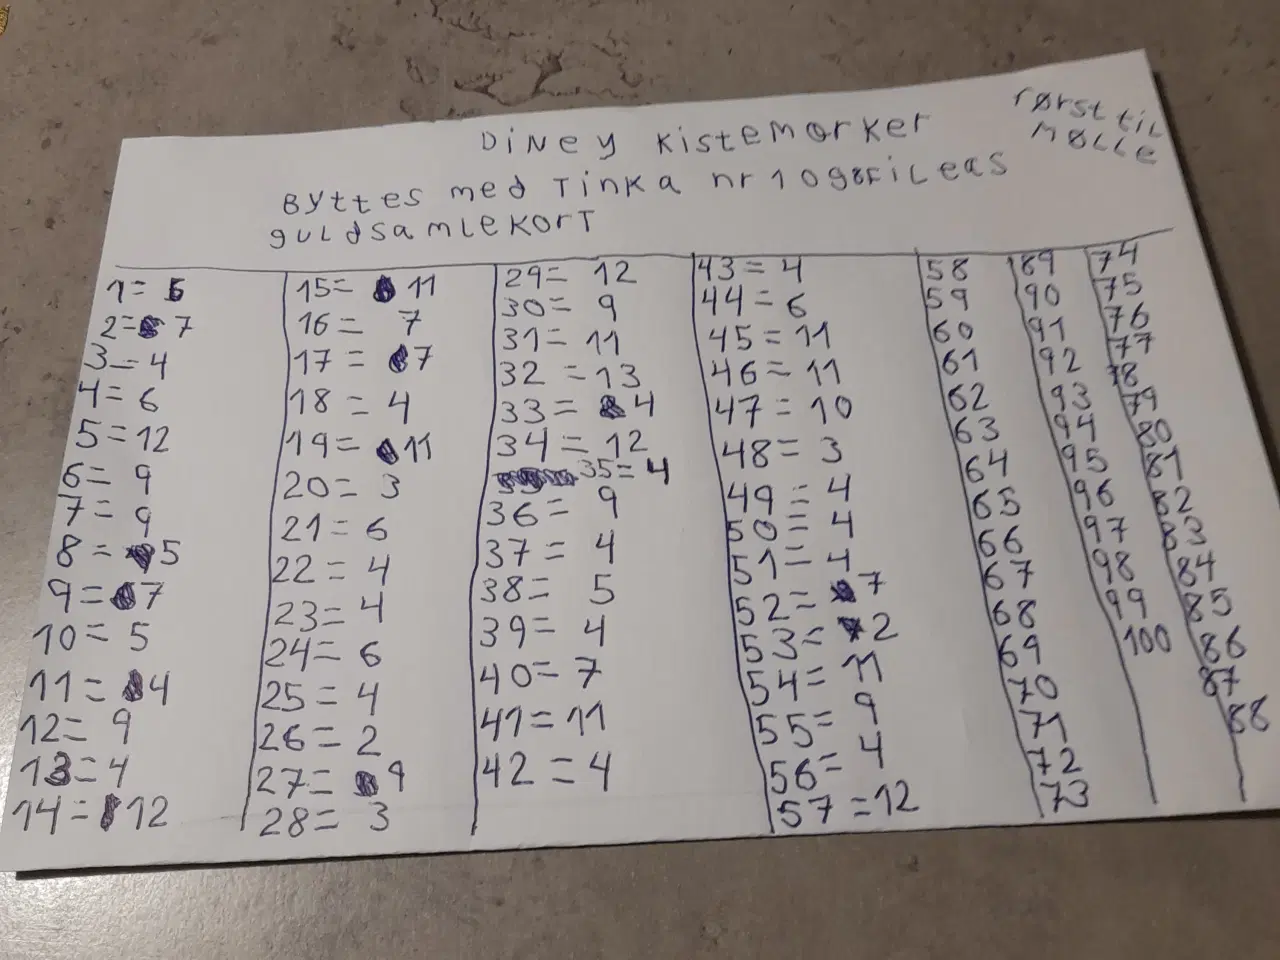 DiNey Kistemarker
Først til
Mølle
Byttes med Tinka nr 1 og 8 Fileas
guldsamlekort
1= 5
2= 7
3= 4
4= 6
5= 12
6= 9
7= 9
8= 5
9= 7
10= 5
11= 4
12= 9
13= 4
14= 12
15= 11
16= 7
17= 7
18= 4
19= 11
20= 3
21= 6
22= 4
23= 4
24= 6
25= 4
26= 2
27= 9
28= 3
29= 12
30= 9
31= 11
32= 13
33= 4
34= 12
35= 4
36= 9
37= 4
38= 5
39= 4
40= 7
41= 11
42= 4
43= 4
44= 6
45= 11
46= 11
47= 10
48= 3
49= 4
50= 4
51= 4
52= 7
53= 2
54= 11
55= 9
56= 4
57= 12
58
59
60
61
62
63
64
65
66
67
68
69
70
71
72
73
89
90
91
92
93
94
95
96
97
98
99
100
74
75
76
77
78
79
80
81
82
83
84
85
86
87
88